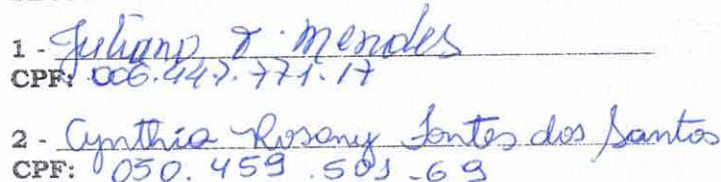 1 - Juliano T. Mendes
CPF: 006.447.771-17
2 - Cynthia Rosany Fontes dos Santos
CPF: 050.459.501-69